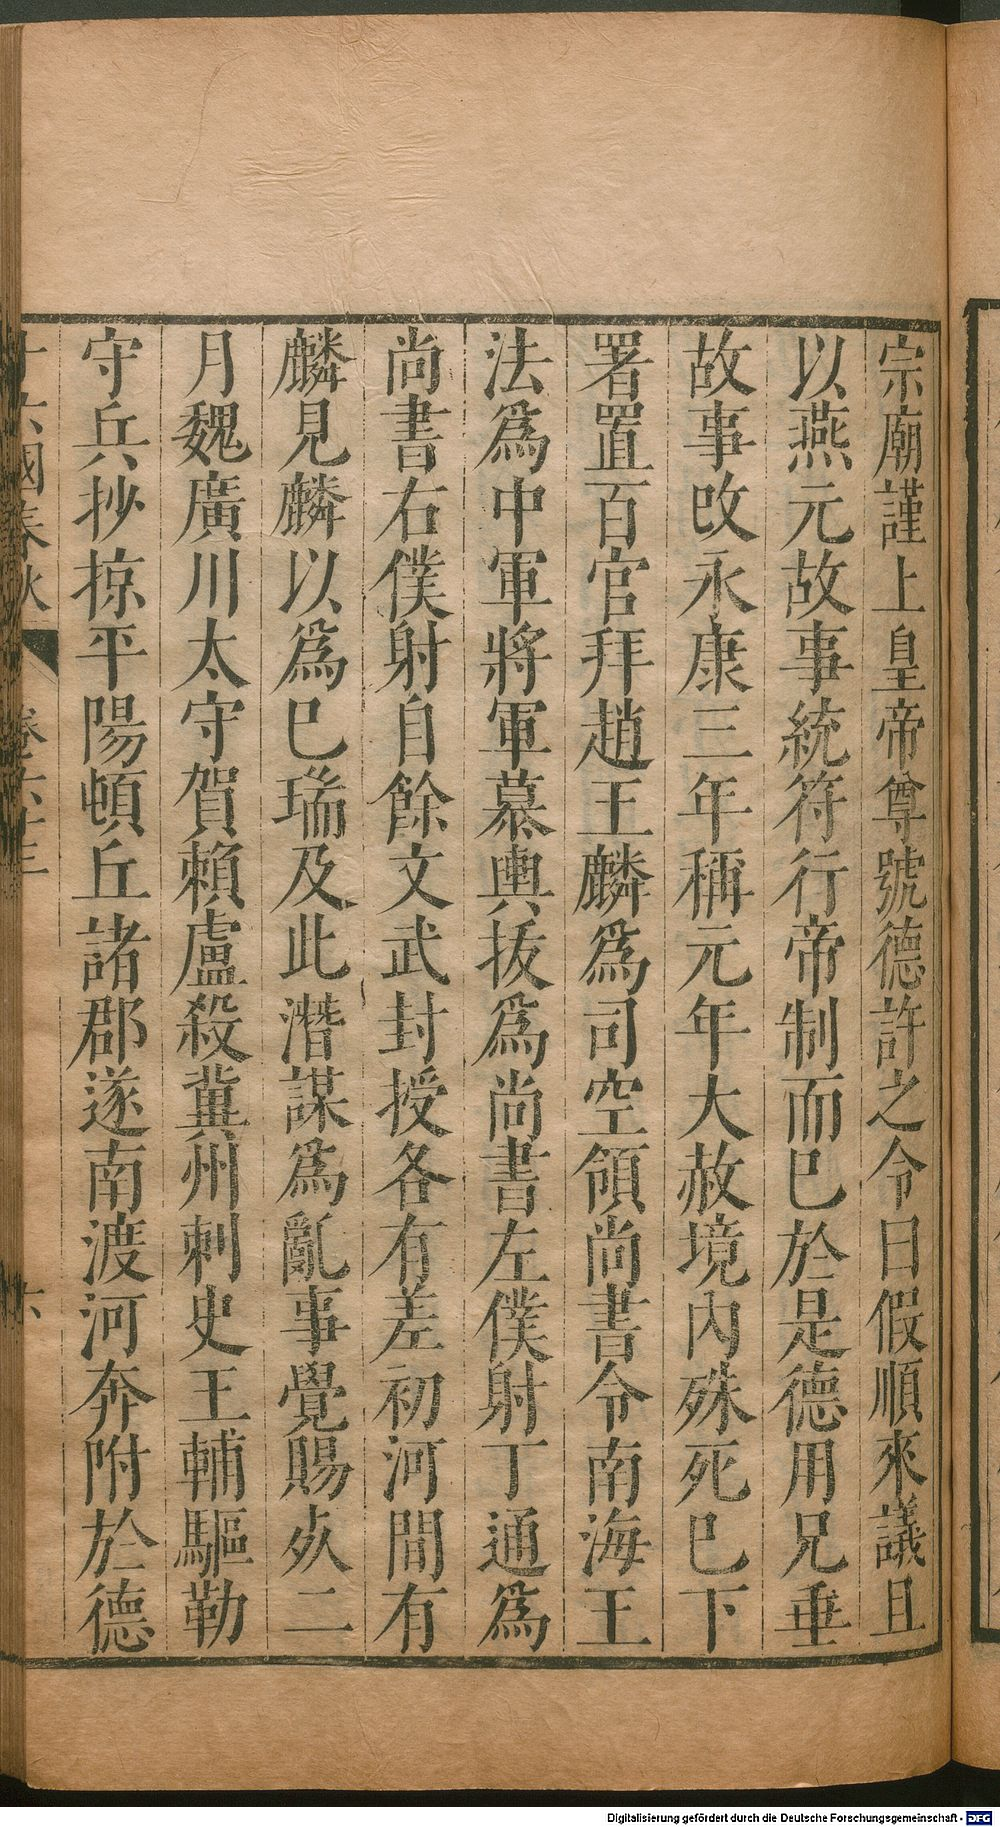 宗廟謹上皇帝尊號德許之令曰假順來議且
以燕元故事統符行帝制而巳於是德用兄垂
故事改永康三年稱元年大赦境內殊死巳下
署置百官拜趙王麟為司空領尚書令南海王
法為中軍將軍慕輿拔為尚書左僕射丁通為
尚書右僕射自餘文武封授各有差初河間有
麟見麟以為巳瑞及此潛謀為亂事覺賜死二
月魏廣川太守賀賴盧殺冀州刺史王輔驅勒
守兵抄掠平陽頓丘諸郡遂南渡河奔附於德
十六國春秋 卷六十三 六
Digitalisierung gefördert durch die Deutsche Forschungsgemeinschaft - DFG